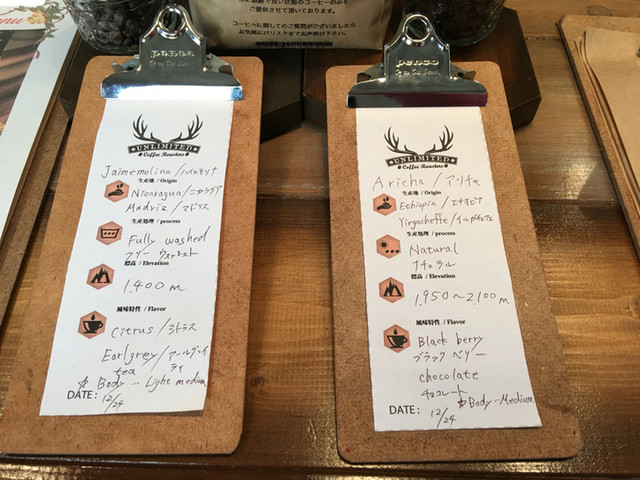 提供させて頂いております。
コーヒーに関してのご質問がございましたら
お気軽にバリスタまでお声掛け下さい。
penco
UNLIMITED
Coffee Roasters
Jaimemolina/ハイメモリナ
生産地 / Origin
Nicaragua/ニカラグア
Madriz/マドリス
生産処理 / process
Fully washed
フリー ウォッシュト
標高 / Elevation
1,400 m
風味特性 / Flavor
Citrus/シトラス
Earlgrey/アールグレイ
tea ティ
☆ Body … Light medium
DATE: 12/24
penco
UNLIMITED
Coffee Roasters
Aricha/アリチャ
生産地 / Origin
Ethiopia/エチオピア
Yirgacheffe/イルガチェフェ
生産処理 / process
Natural
ナチュラル
標高 / Elevation
1,950〜2,100m
風味特性 / Flavor
Black berry
ブラック ベリー
chocolate
チョコレート
☆Body…Medium
DATE: 12/24